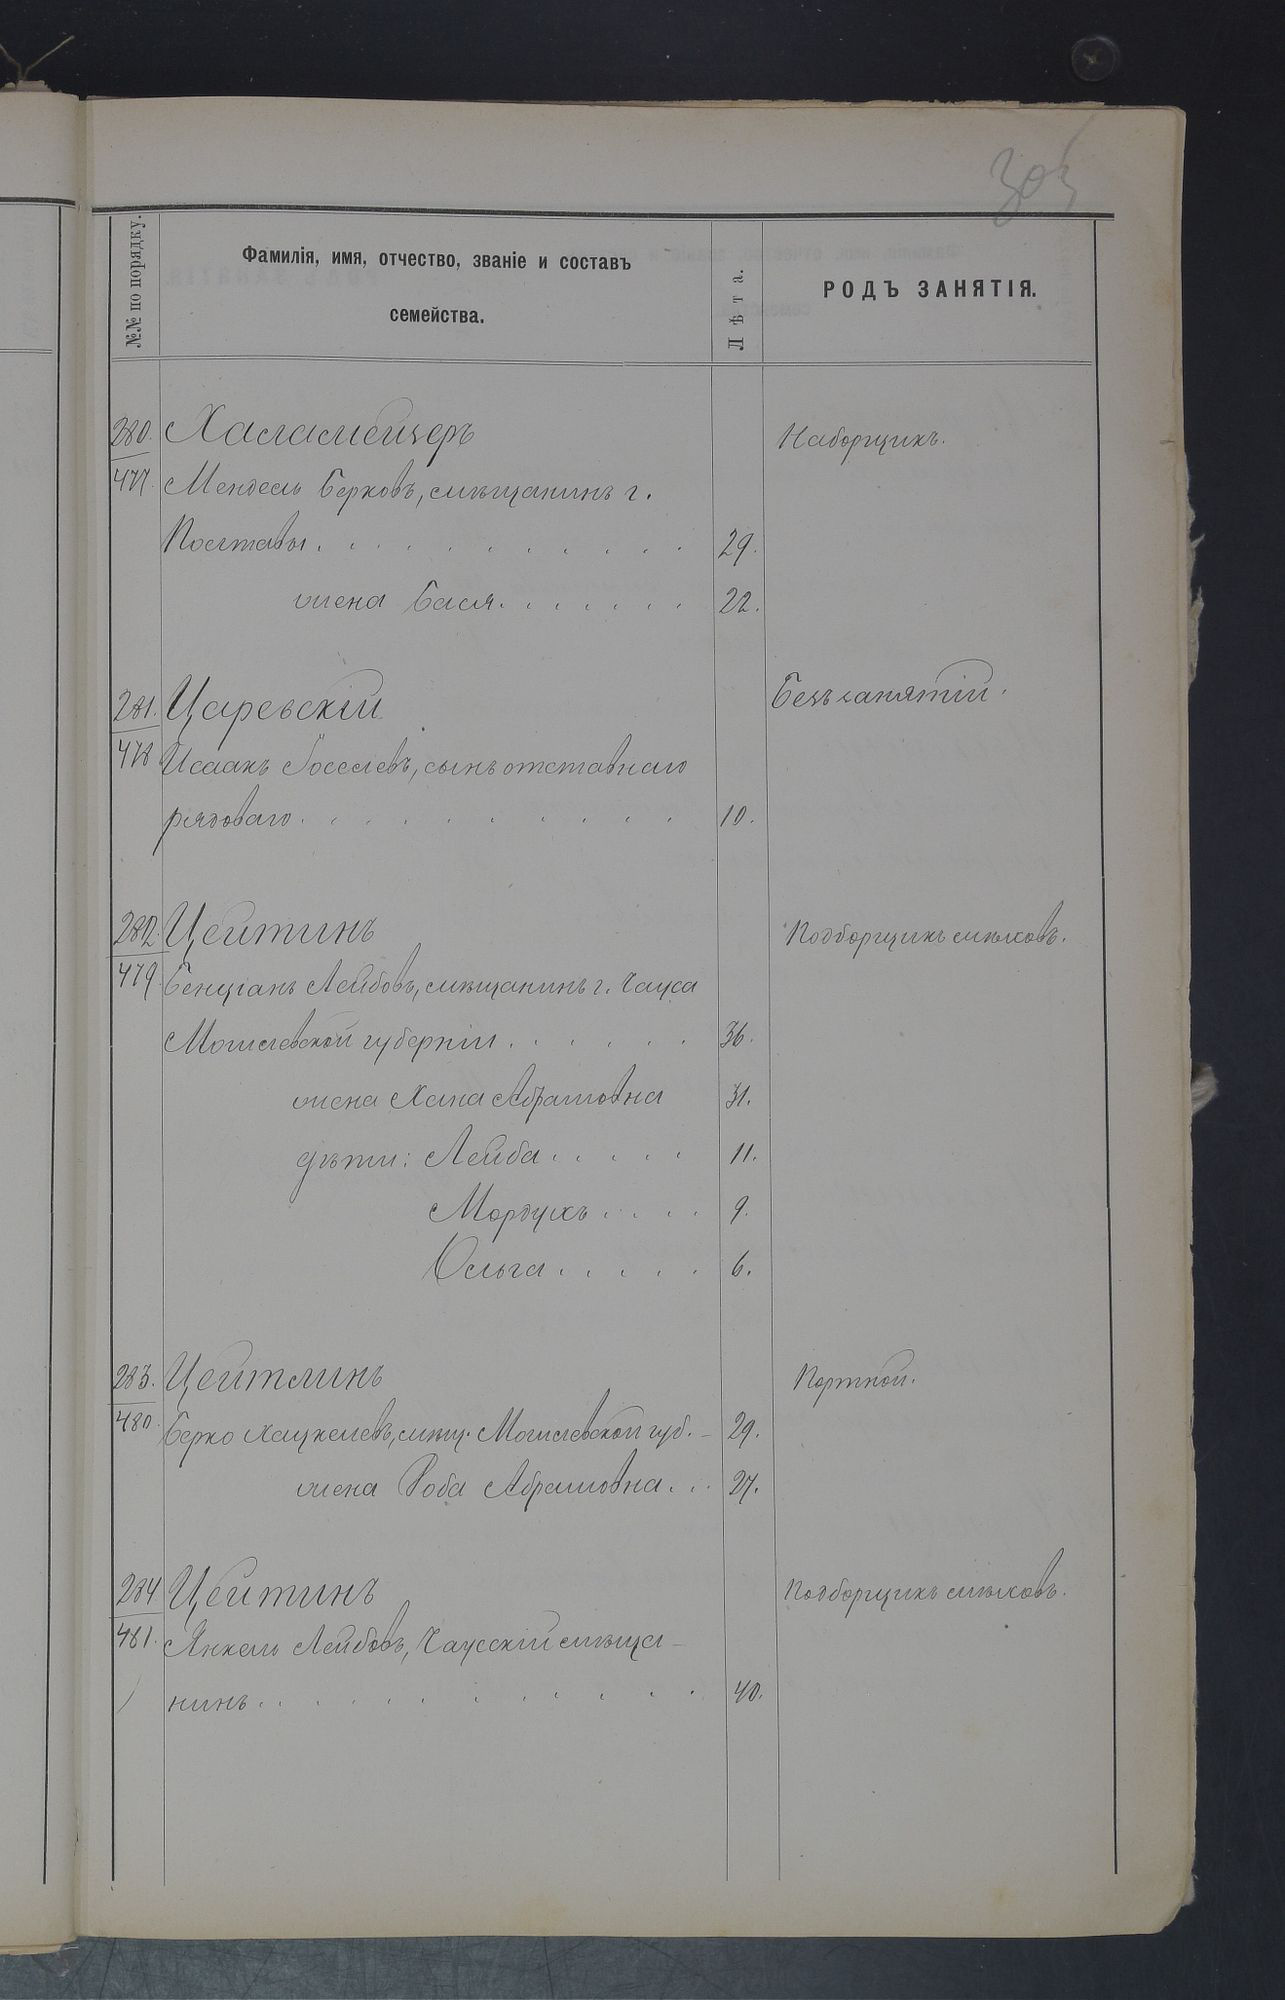 303
№№ по порядку.
Фамилія, имя, отчество, званіе и составъ
семейства.
Лѣта.
РОДЪ ЗАНЯТІЯ.
280. Халамейзеръ Наборщикъ.
477. Мендель Берковъ, мѣщанинъ г.
Полтавы . . . . . . . . . . . 29.
жена Бася . . . . . . . 22.
281. Царевскій Безъ занятій.
478 Исаакъ Іоселевъ, сынъ отставнаго
рядоваго . . . . . . . . . . 10.
282. Цейтинъ Подборщикъ смыковъ.
479. Бенціанъ Лейбовъ, мѣщанинъ г. Чауса
Могилевской губерніи . . . . . . 36.
жена Хана Абрамовна 31.
дѣти: Лейба . . . . . 11.
Мордухъ . . . . 9.
Ольга . . . . . 6.
283. Цейтлинъ Портной.
480. Берко Хацкелевъ, мѣщ. Могилевской губ. - 29.
жена Роба Абрамовна . . . 27.
284. Цейтинъ Подборщикъ смыковъ.
481. Янкель Лейбовъ, Чаусскій мѣща-
нинъ . . . . . . . . . . . 40.